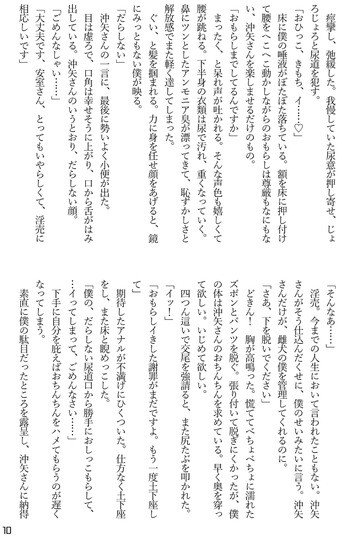 痙攣し、弛緩した。我慢していた尿意が押し寄せ、じょ
ろじょろと尿道を犯す。
「おひっこ、きもち、イ……♡」
床に僕の唾液がぽたぽた落ちている。額を床に押し付け
て腰をへこへこ動かしながらのおもらしは尊厳もなにもな
い、沖矢さんを楽しませるだけのもの。
「おもらしまでしてるんですか」
まったく、と呆れ声が吐かれる。そんな声色も嬉しくて
腰が跳ねる。下半身の衣類は尿で汚れ、重くなっていく。
鼻にツンとしたアンモニア臭が漂ってきて、恥ずかしさと
解放感でまた軽く達してしまった。
ぐい、と髪を掴まれる。力に身を任せ顔をあげると、鏡
にみっともない僕が映る。
「だらしない」
沖矢さんの一言に、最後に勢いよく小便が出た。
目は虚ろで、口角は幸せそうに上がり、口から舌がはみ
出している。沖矢さんのいうとおり、だらしない顔。
「ごめんなしゃい……」
「大丈夫です、安室さん、とってもいやらしくて、淫売に
相応しいです」
「そんなあ……」
淫売。今までの人生において言われたこともない。沖矢
さんがそう仕込んだくせに、僕のせいみたいに言う。沖矢
さんだけが、雌犬の僕を管理してくれるのに。
「さあ、下を脱いでください」
どきん！　胸が高鳴った。慌ててべちょべちょに濡れた
ズボンとパンツを脱ぐ。張り付いて脱ぎにくかったが、僕
の体は沖矢さんのおちんちんを求めている。早く奥を穿っ
て欲しい。いじめて欲しい。
四つん這いで交尾を強請ると、また尻たぶを叩かれた。
「イッ！」
「おもらしイきした謝罪がまだですよ。もう一度土下座し
て」
期待したアナルが不満げにひくついた。仕方なく土下座
をし、また床と睨めっこした。
「僕の、だらしない尿道口から勝手におしっこもらして、
…イってしまって、ごめんなさい……」
下手に自分を庇えばおちんちんをハメてもらうのが遅く
なってしまう。
素直に僕の駄目だったところを露呈し、沖矢さんに納得
10